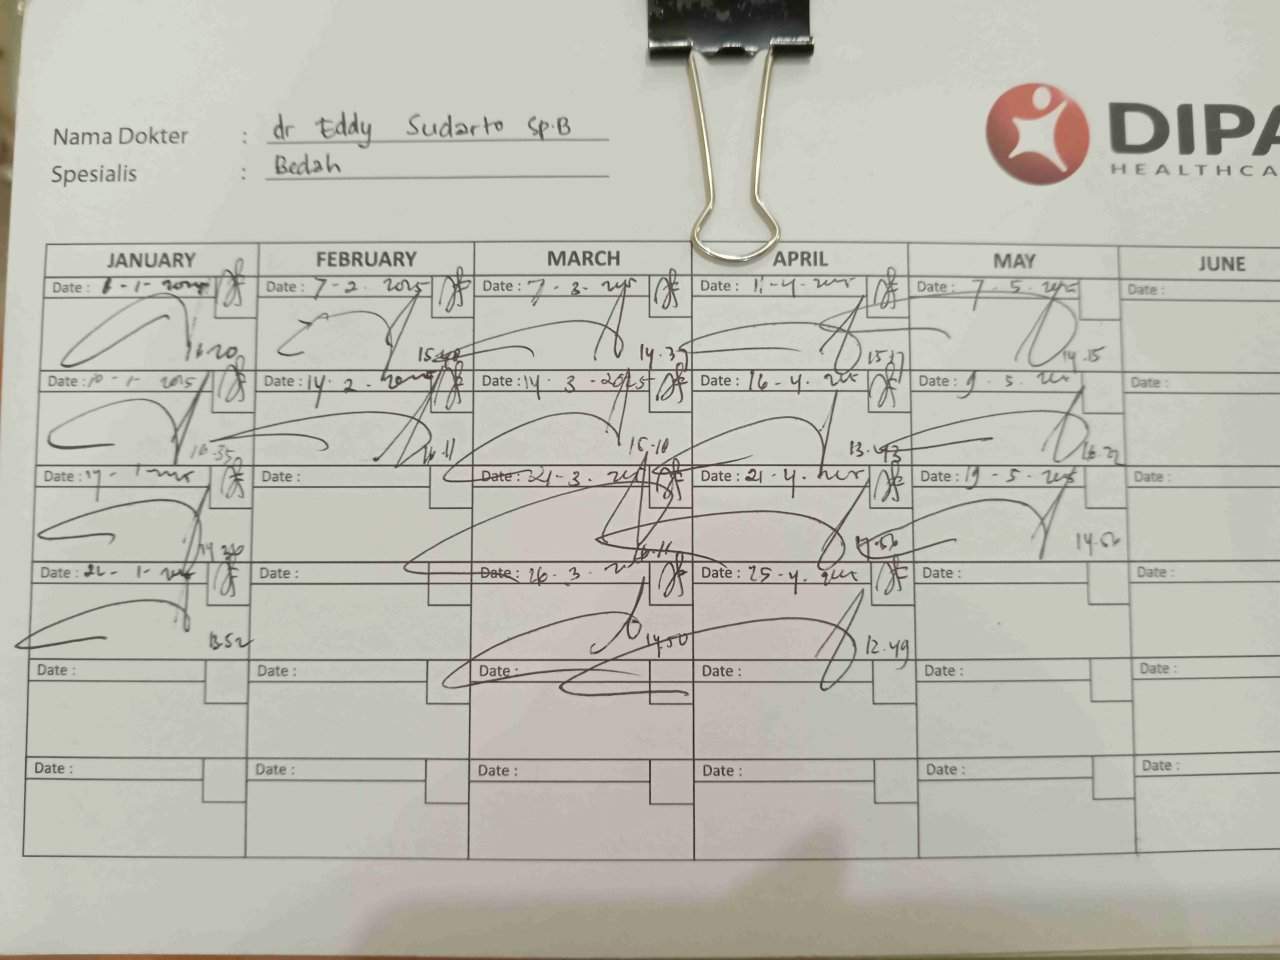 Nama Dokter : dr Eddy Sudarto Sp.B
Spesialis : Bedah
DIPA
HEALTHCA
JANUARY FEBRUARY MARCH APRIL MAY JUNE
Date : 6-1- Date : 7-2. 2025 Date : 7.3. Date : 11-4. Date : 7.5. Date :
16.20 15. 14.37 15.17 14.15
Date : 10-1-2025 Date : 14.2. Date : 14.3-2025 Date : 16-4. Date : 9.5. Date :
16.35 16.11 15.10 13.43 16.22
Date : 17-1- Date : Date : 21-3. Date : 21-4. Date : 19-5. Date :
14.56
Date : 22-1- Date : Date : 26.3. Date : 25-4. Date : Date :
13.52 14.50 12.49
Date : Date : Date : Date : Date : Date :
Date : Date : Date : Date : Date : Date :